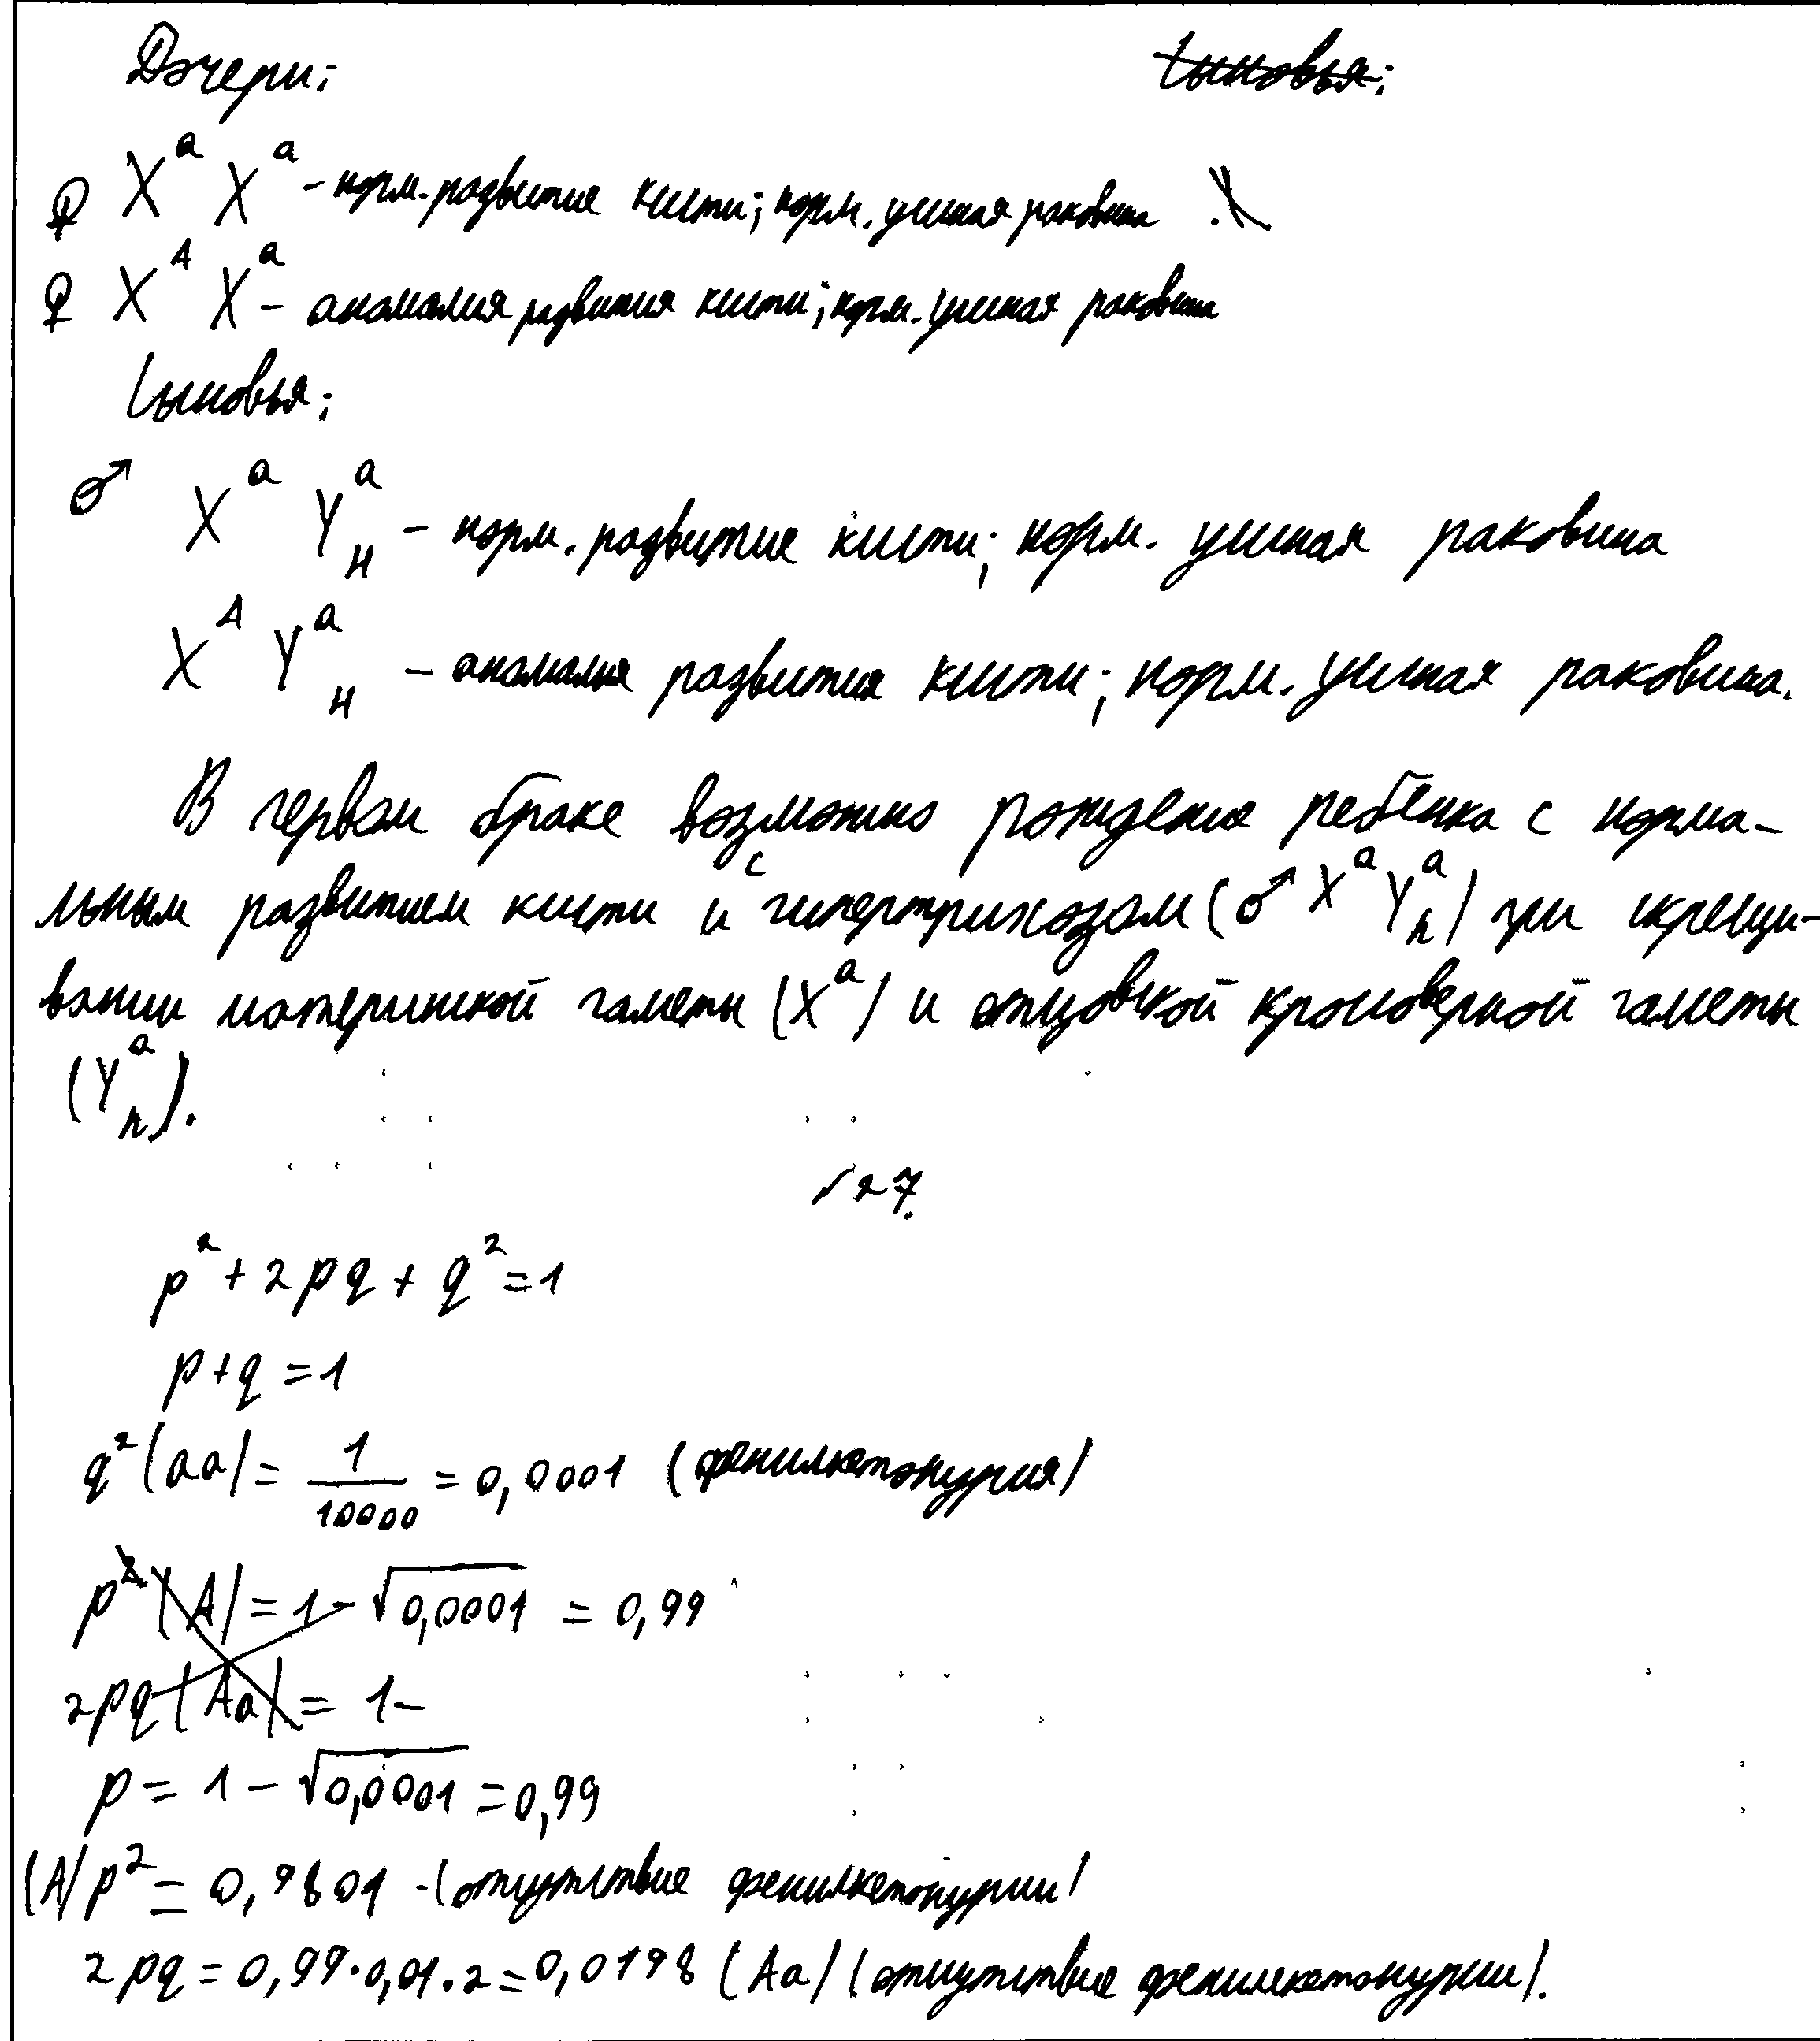 Дочери:
Сыновья:
♀ X^a X^a - норм. развитие кисти; норм. ушная раковина . X
♀ X^A X^a - аномалия развития кисти; норм. ушная раковина
Сыновья:
♂ X^a Y^a_H - норм. развитие кисти; норм. ушная раковина
X^A Y^a_H - аномалия развития кисти; норм. ушная раковина.
В первом браке возможно рождение ребёнка с норма-
льным развитием кисти и с гипертрихозом (♂ X^a Y^a_h) при скрещи-
вании материнской гаметы (X^a) и отцовской кроссоверной гаметы
(Y^a_h).
№27.
p² + 2pq + q² = 1
p + q = 1
q² (aa) = 1/10000 = 0,0001 (фенилкетонурия)
p² (A) = 1 - √0,0001 = 0,99
2pq (Aa) = 1 -
p = 1 - √0,0001 = 0,99
(A) p² = 0,9801 - (отсутствие фенилкетонурии)
2pq = 0,99·0,01·2 = 0,0198 (Aa) (отсутствие фенилкетонурии).